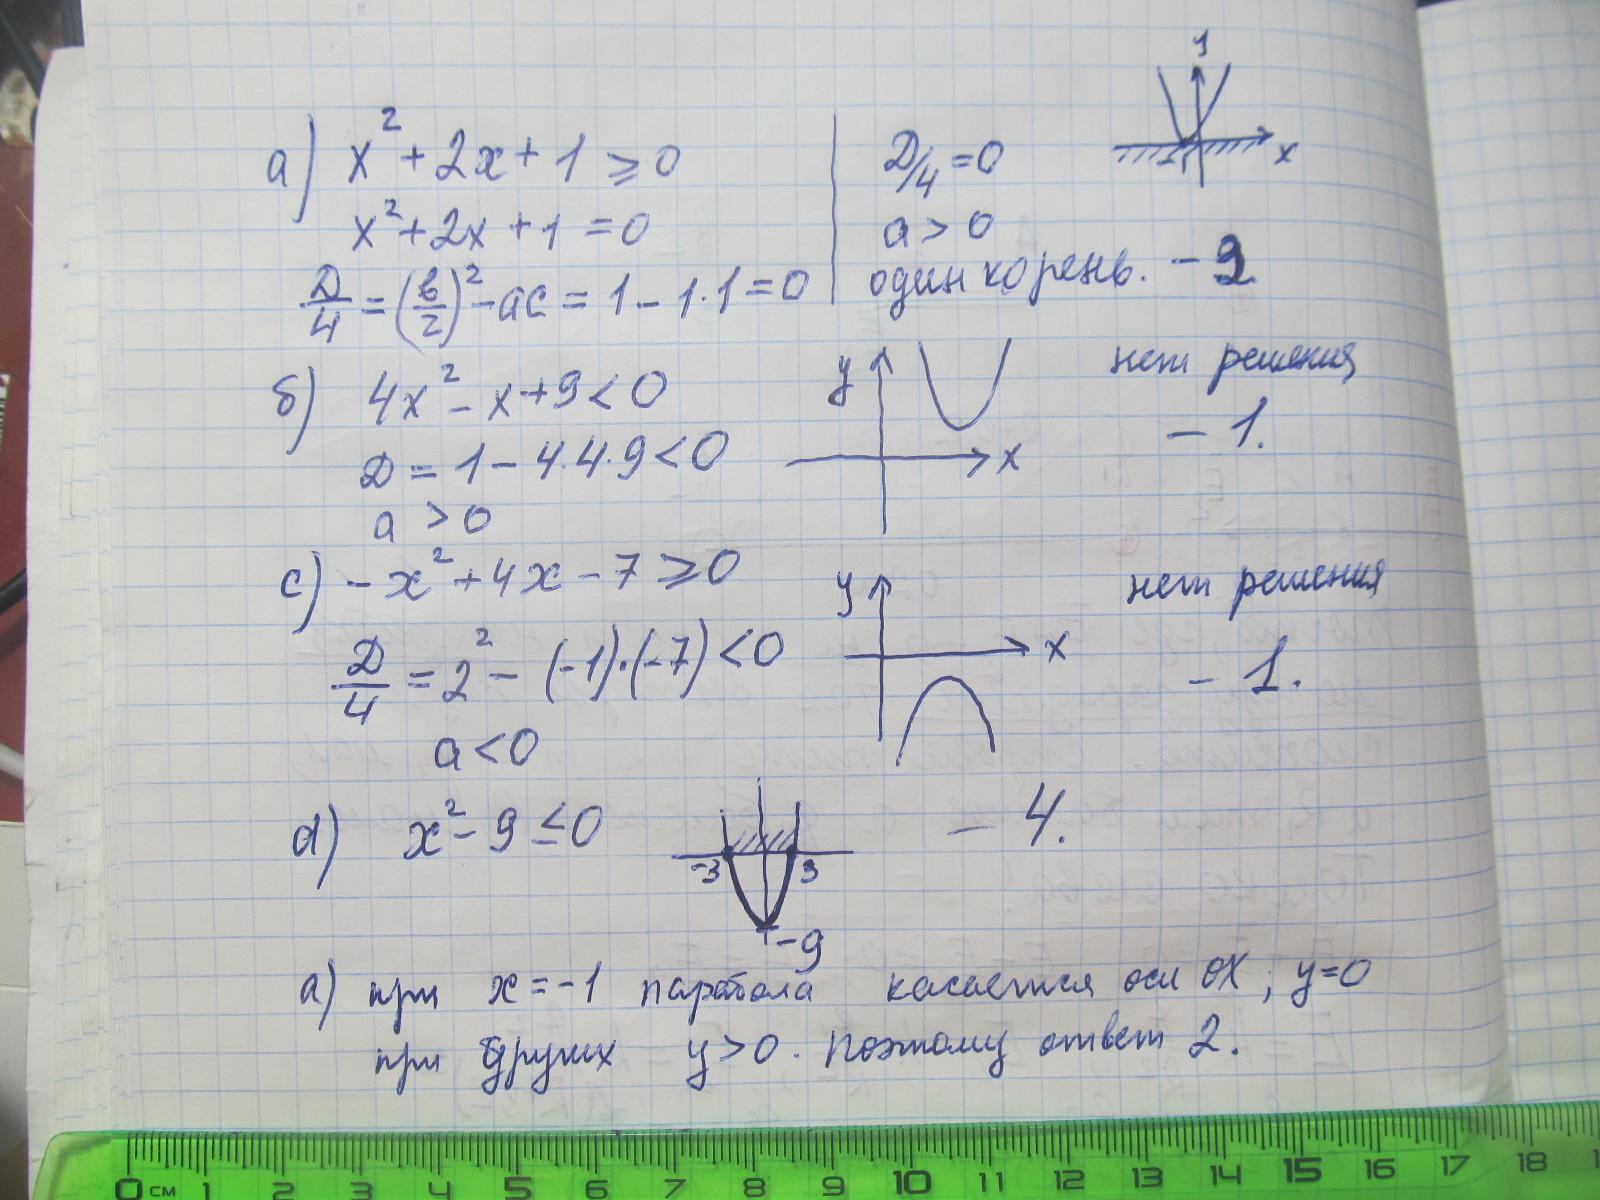 а) x² + 2x + 1 ≥ 0
x² + 2x + 1 = 0
Д/4 = (в/2)² - ac = 1 - 1·1 = 0
Д/4 = 0
a > 0
один корень. - 2
y
x
-1
б) 4x² - x + 9 < 0
Д = 1 - 4·4·9 < 0
a > 0
y
x
нет решения
- 1.
c) - x² + 4x - 7 ≥ 0
Д/4 = 2² - (-1)·(-7) < 0
a < 0
y
x
нет решения
- 1.
d) x² - 9 ≤ 0
-3 3
-9
- 4.
а) при x = -1 парабола касается оси OX ; y = 0
при других y > 0. поэтому ответ 2.
0 см 1 2 3 4 5 6 7 8 9 10 11 12 13 14 15 16 17 18